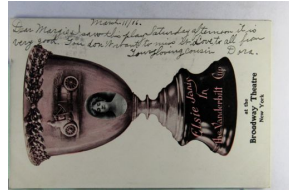 March 11/06.
Dear Margie: saw this play Saturday afternoon. It is
very good. You don't want to miss it. Love to all from
Your loving cousin Dora.
Elsie Janis
in
The Vanderbilt Cup
at the
Broadway Theatre
New York